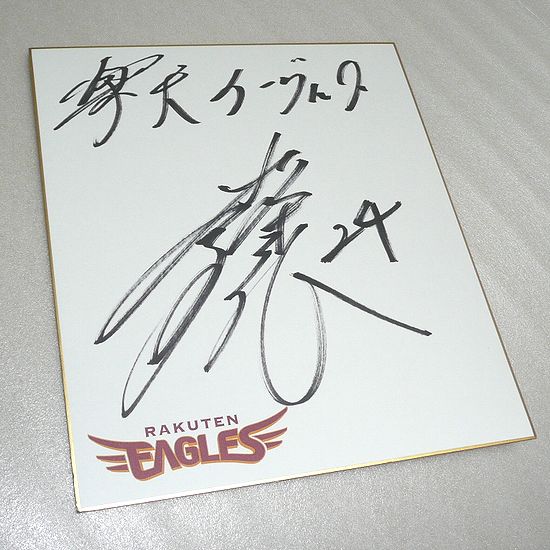 楽天イーグルス
24
RAKUTEN
EAGLES